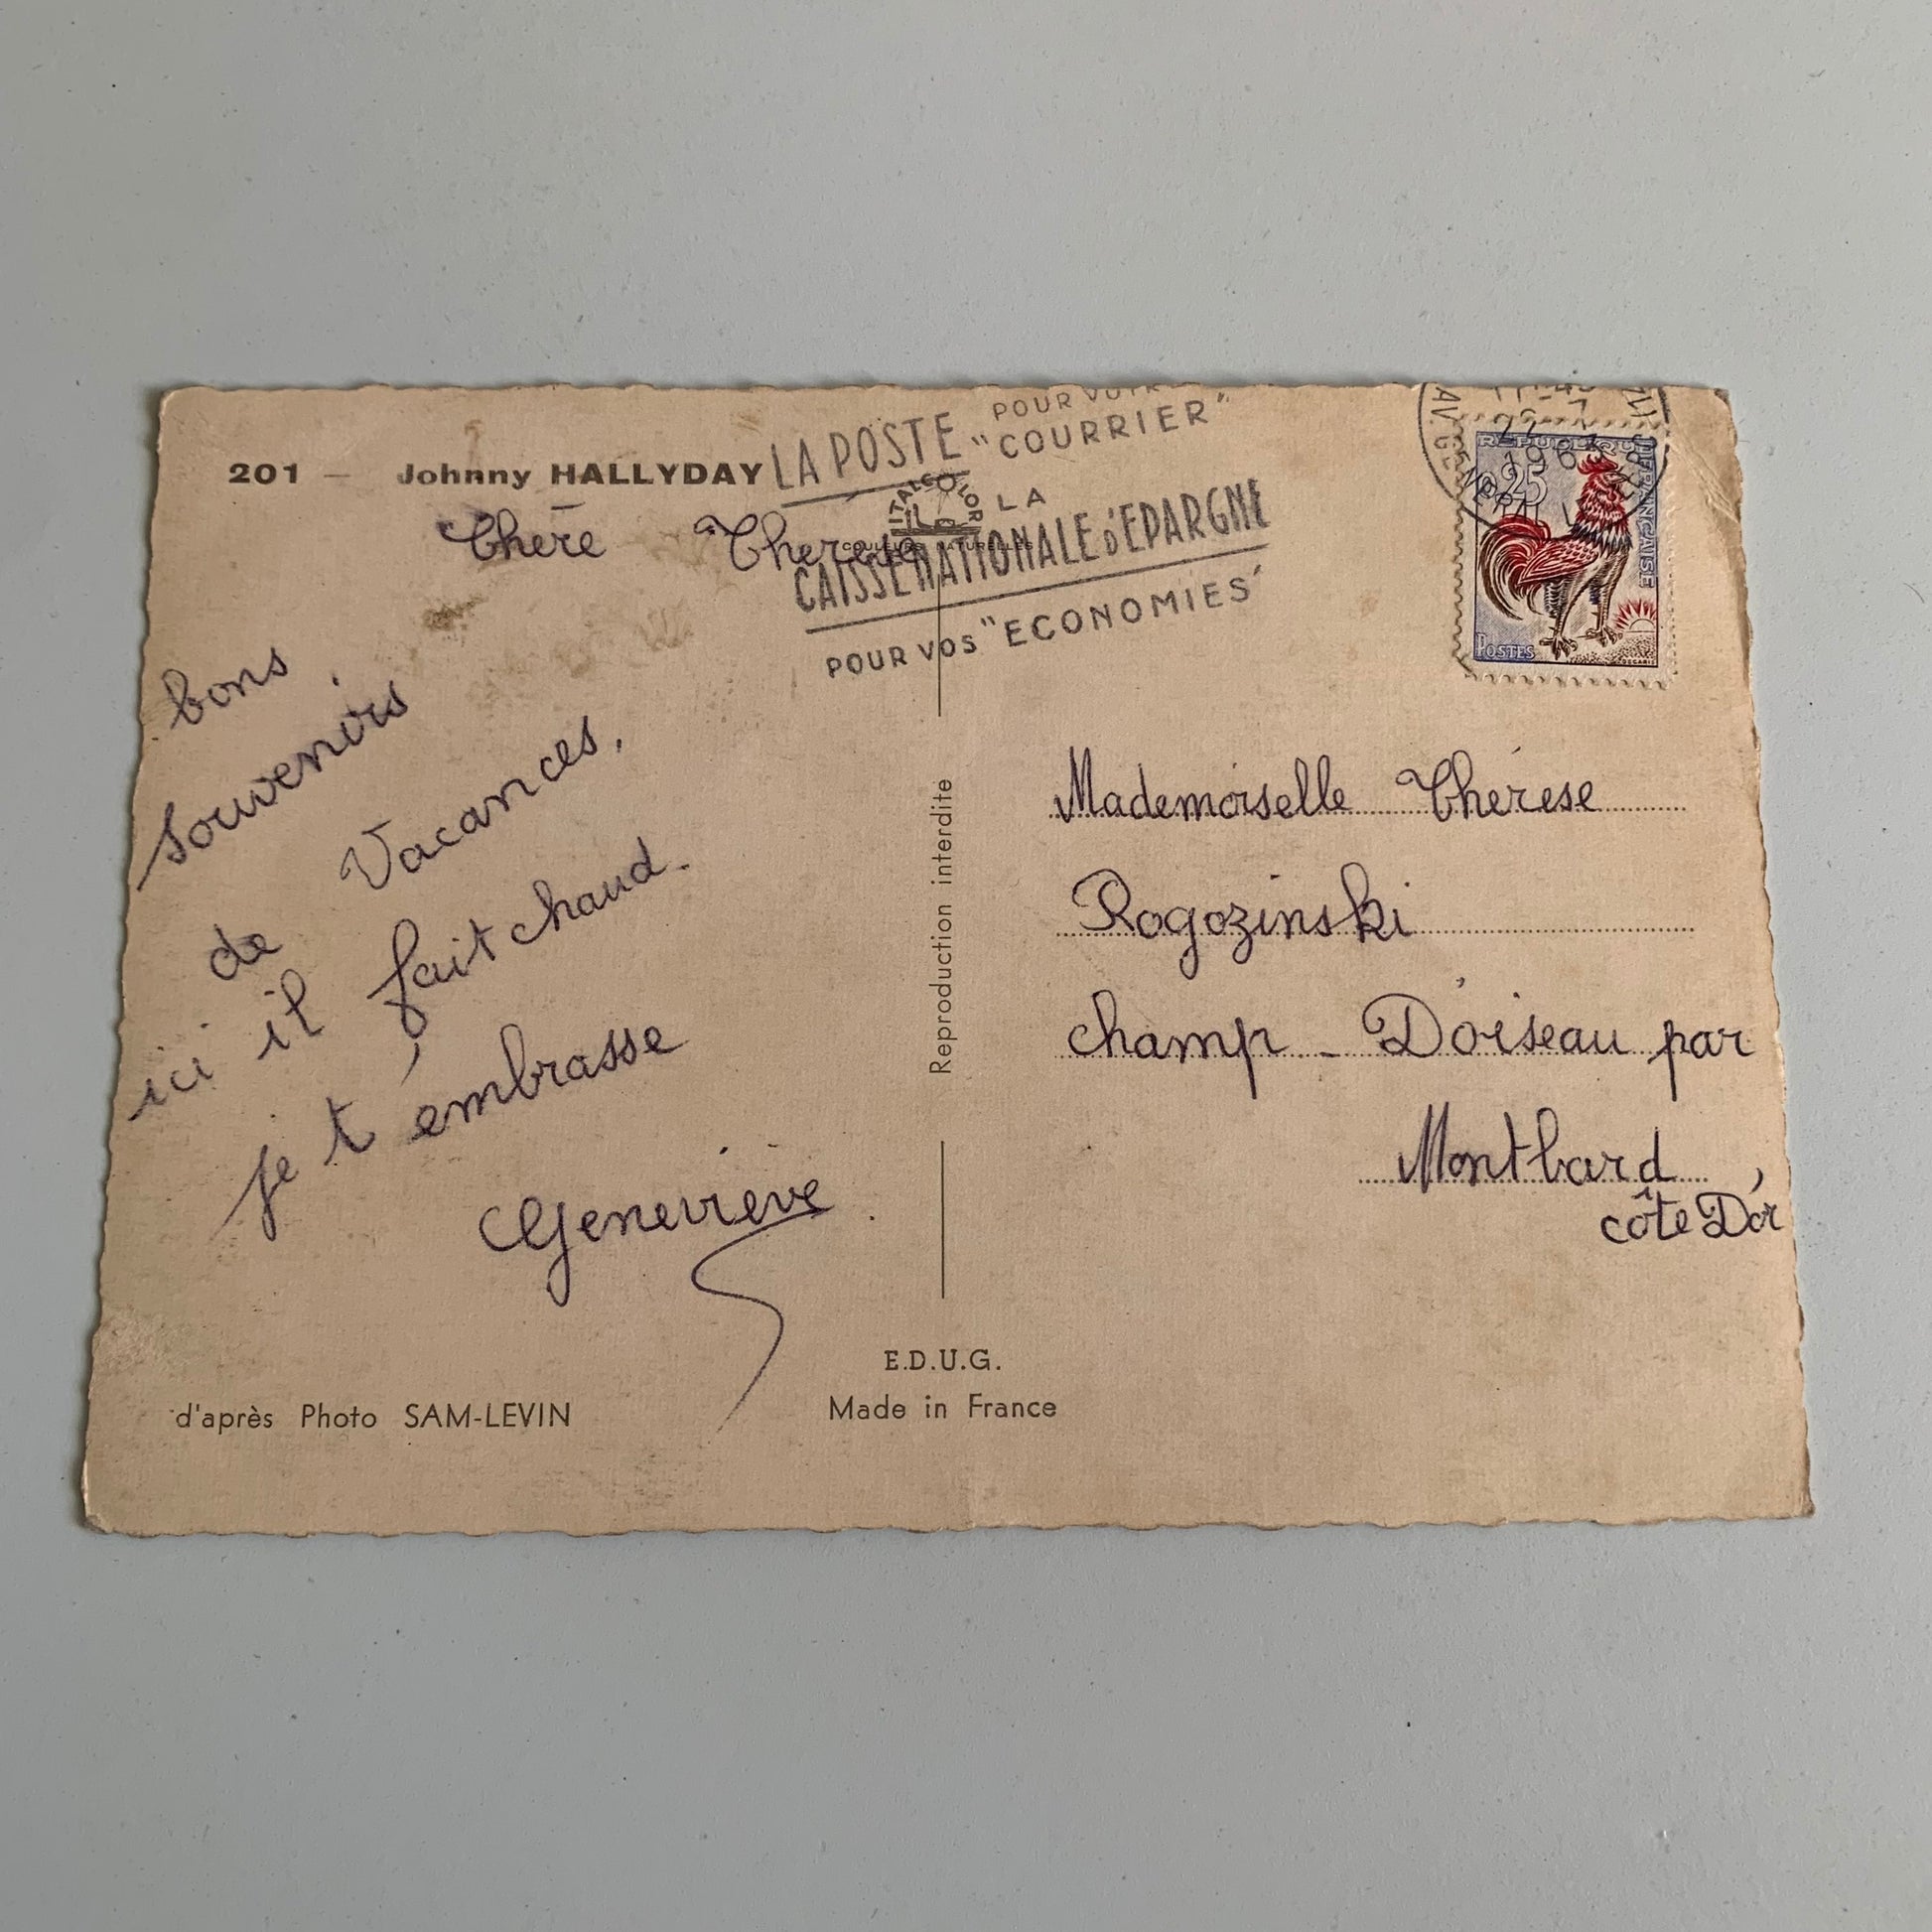 201 — Johnny HALLYDAY
Chère Therese
bons
souvenirs
de Vacances,
ici il fait chaud.
je t'embrasse
Geneviève.
d'après Photo SAM-LEVIN
LA POSTE POUR VOTRE "COURRIER"
LA
CAISSE NATIONALE D'EPARGNE
POUR VOS "ECONOMIES"
ITALCOLOR
Reproduction interdite
E.D.U.G.
Made in France
REPUBLIQUE FRANCAISE
0,25
POSTES
DECARIS
22-7
196
Mademoiselle Thérese
Rogozinski
champ - D'oiseau par
Montbard,
côte D'or